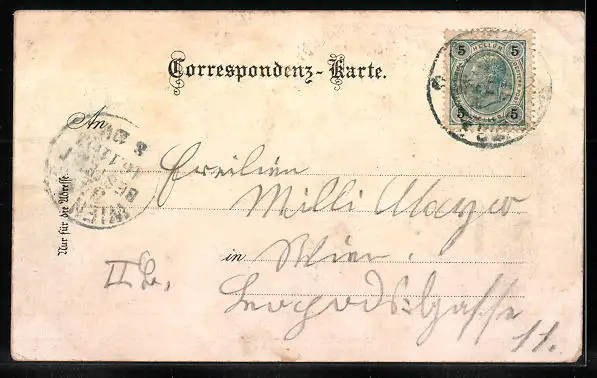 Correspondenz-Karte.
5 5
5 5
An
Freilien
Milli Mayer
in Wien.
II B.
Leopoldsgasse
11.
Nur für die Adresse
WIEN